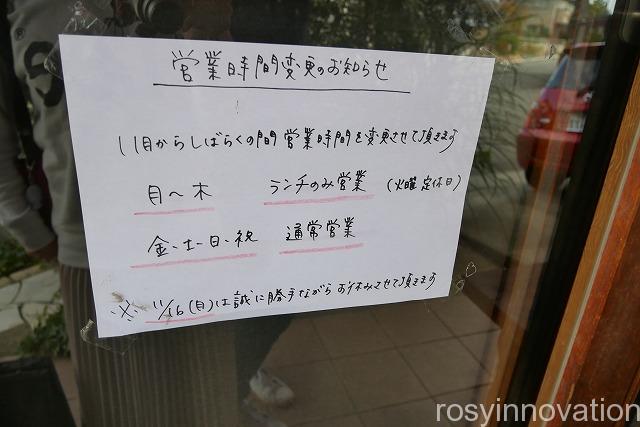 営業時間変更のお知らせ
11月からしばらくの間 営業時間を変更させて頂きます
月〜木 ランチのみ営業 (火曜定休日)
金・土・日・祝 通常営業
※ 11/16(月)は誠に勝手ながらお休みさせて頂きます
rosyinnovation